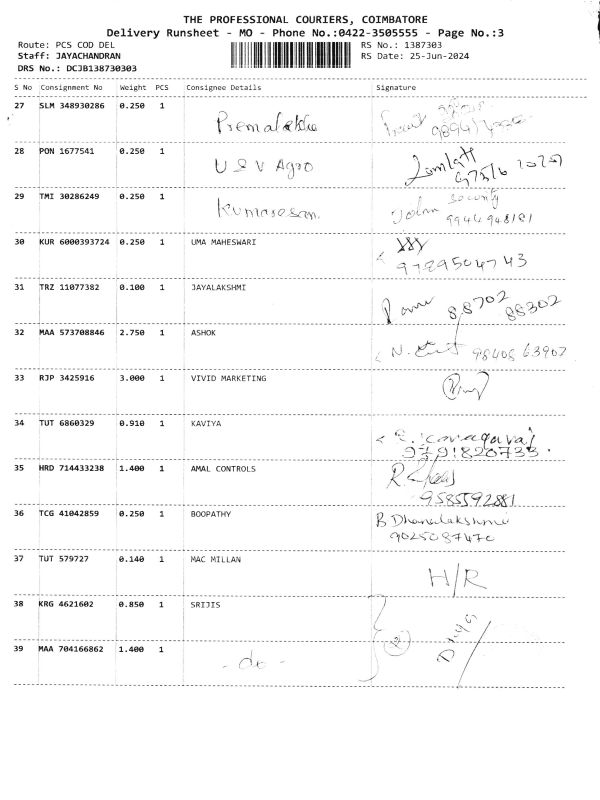 THE PROFESSIONAL COURIERS, COIMBATORE
Delivery Runsheet - MO - Phone No.:0422-3505555 - Page No.:3
Route: PCS COD DEL RS No.: 1387303
Staff: JAYACHANDRAN RS Date: 25-Jun-2024
DRS No.: DCJB138730303
S No Consignment No Weight PCS Consignee Details Signature
27 SLM 348930286 0.250 1 Premalekha
28 PON 1677541 0.250 1 U & V Agro
29 TMI 30286249 0.250 1 Kumaresan. Security
9944948181
30 KUR 6000393724 0.250 1 UMA MAHESWARI
9789504743
31 TRZ 11077382 0.100 1 JAYALAKSHMI 88702
88302
32 MAA 573708846 2.750 1 ASHOK
98408 63907
33 RJP 3425916 3.000 1 VIVID MARKETING
34 TUT 6860329 0.910 1 KAVIYA
9791820733
35 HRD 714433238 1.400 1 AMAL CONTROLS
9585592881
36 TCG 41042859 0.250 1 BOOPATHY B Dhanalakshmi
9025087470
37 TUT 579727 0.140 1 MAC MILLAN H/R
38 KRG 4621602 0.850 1 SRIJIS
2
39 MAA 704166862 1.400 1 - do -